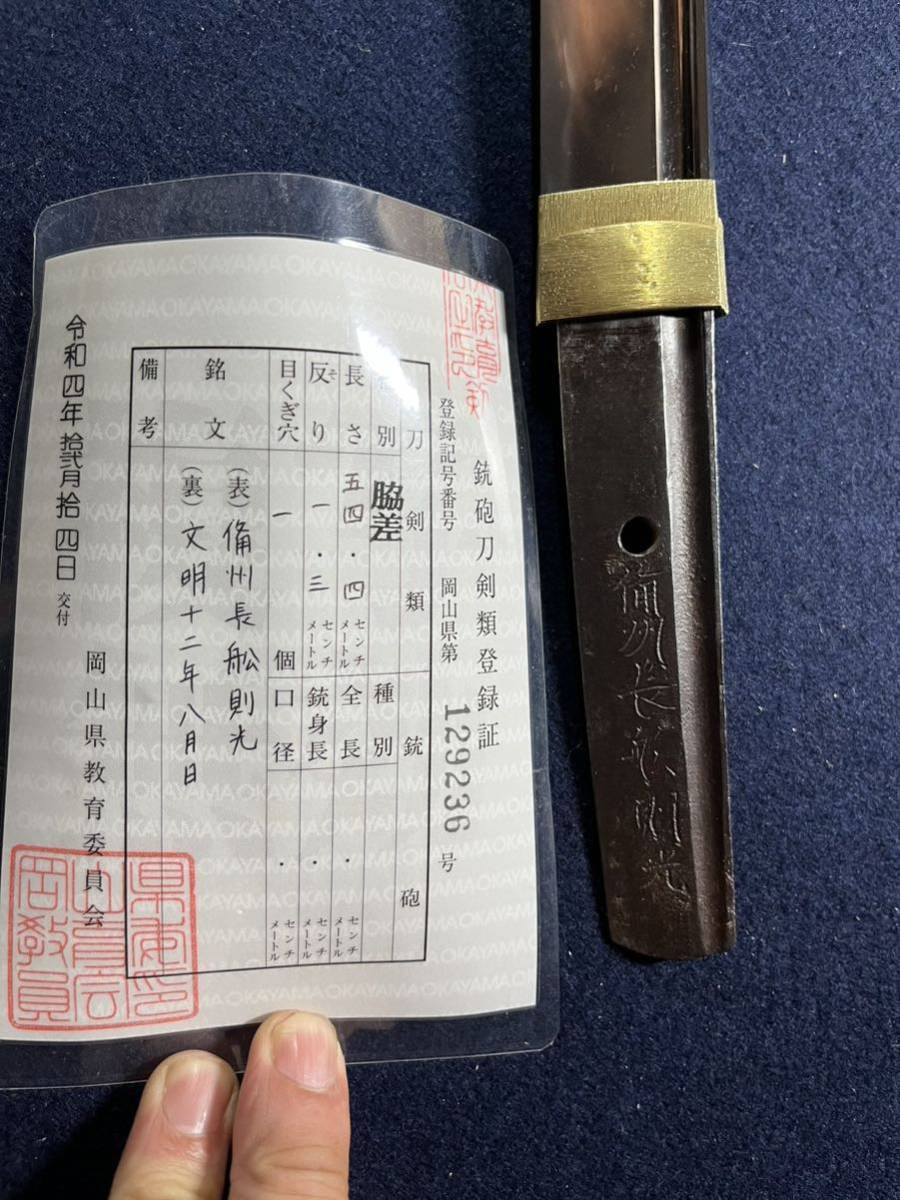 銃砲刀剣類登録証
登録記号番号 岡山県第 129236 号
刀剣類 銃砲
別 脇差 種別
長さ 五四・四 センチメートル 全長 ・ センチメートル
反り そ 一・三 センチメートル 銃身長 ・ センチメートル
目くぎ穴 一 個 口径 ・ センチメートル
銘文 (表) 備州長舩則光
(裏) 文明十二年八月日
備考
令和四年拾弐月拾四日 交付
岡山県教育委員会
OKAYAMA
備州長舩則光